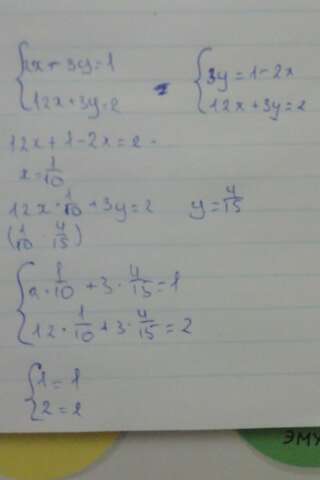 {2x + 3y = 1 {3y = 1 - 2x
{12x + 3y = 2 {12x + 3y = 2
12x + 1 - 2x = 2
x = 1/10
12x · 1/10 + 3y = 2 y = 4/15
(1/10 4/15)
{2 · 1/10 + 3 · 4/15 = 1
{12 · 1/10 + 3 · 4/15 = 2
{1 = 1
{2 = 2
ЭМУ